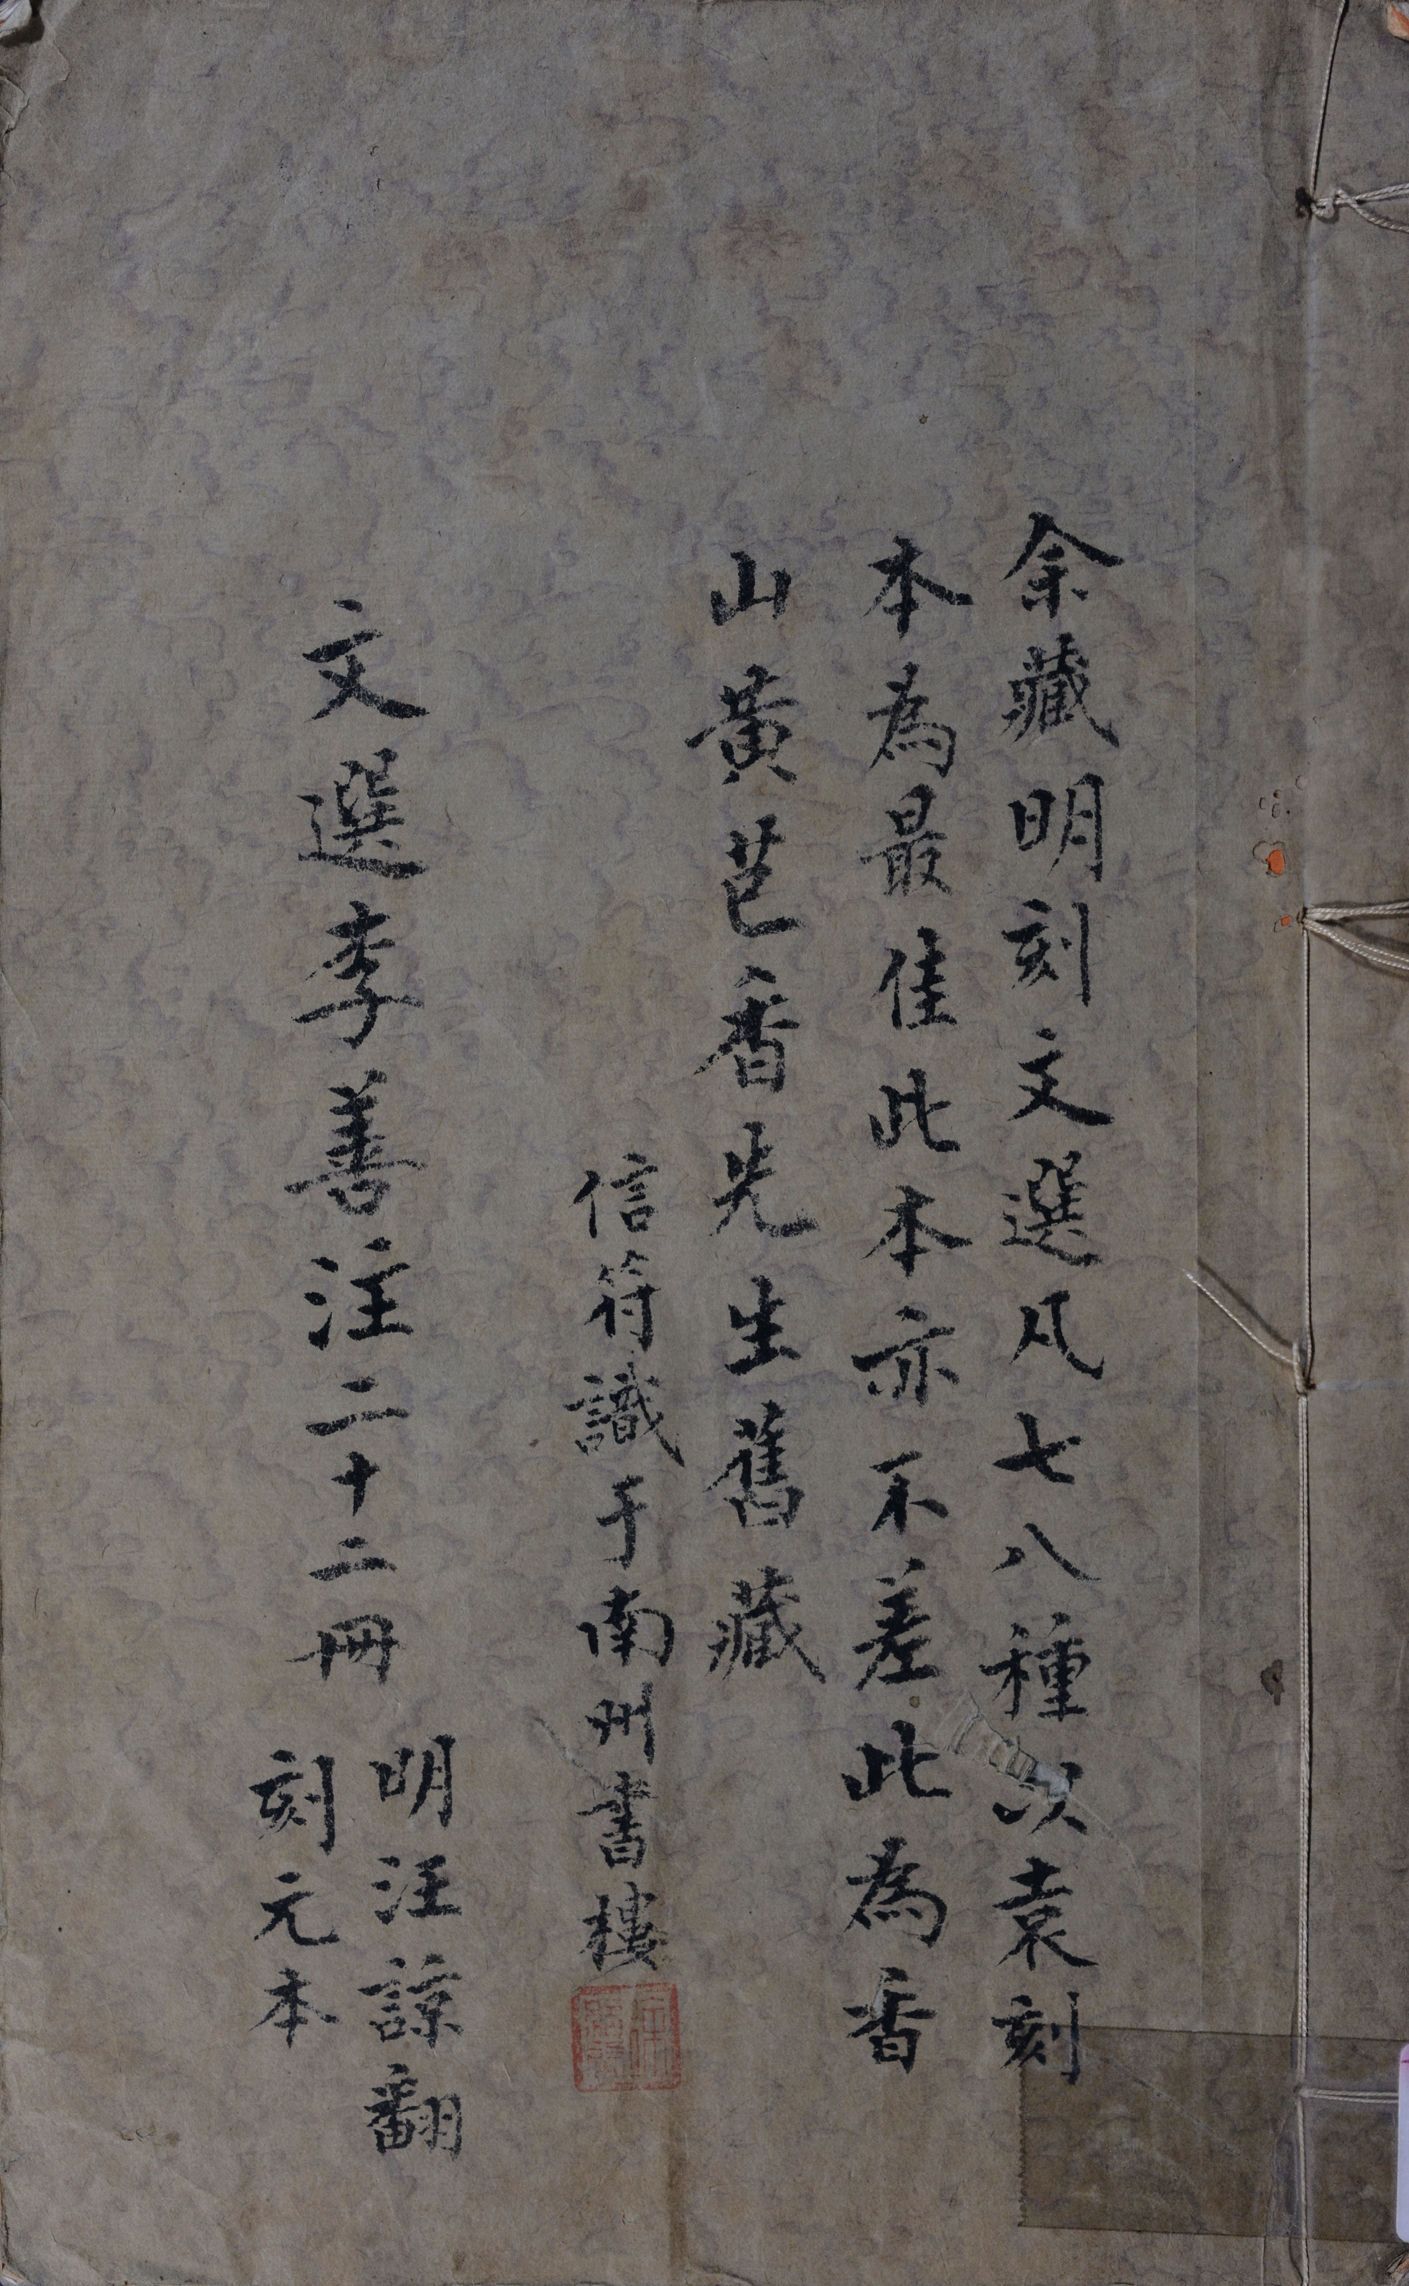 余藏明刻文選凡七八種以袁刻
本為最佳此本亦不差此為香
山黃芑香先生舊藏
信符識于南州書樓
文選李善注二十二冊
明汪諒翻
刻元本